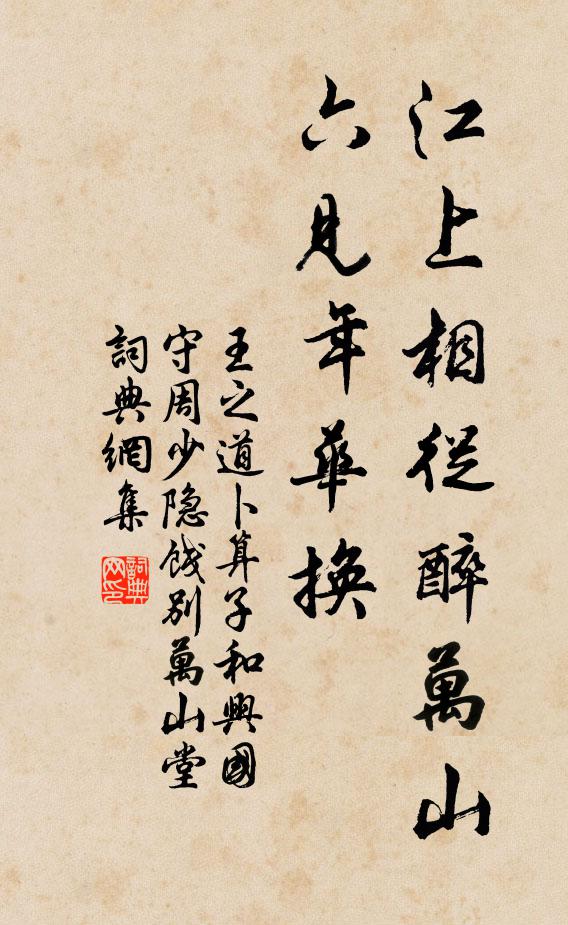 江上相從醉萬山
六見年華換
王之道卜算子和興國
守周少隐餞别萬山堂
詞典網集
詞典網印